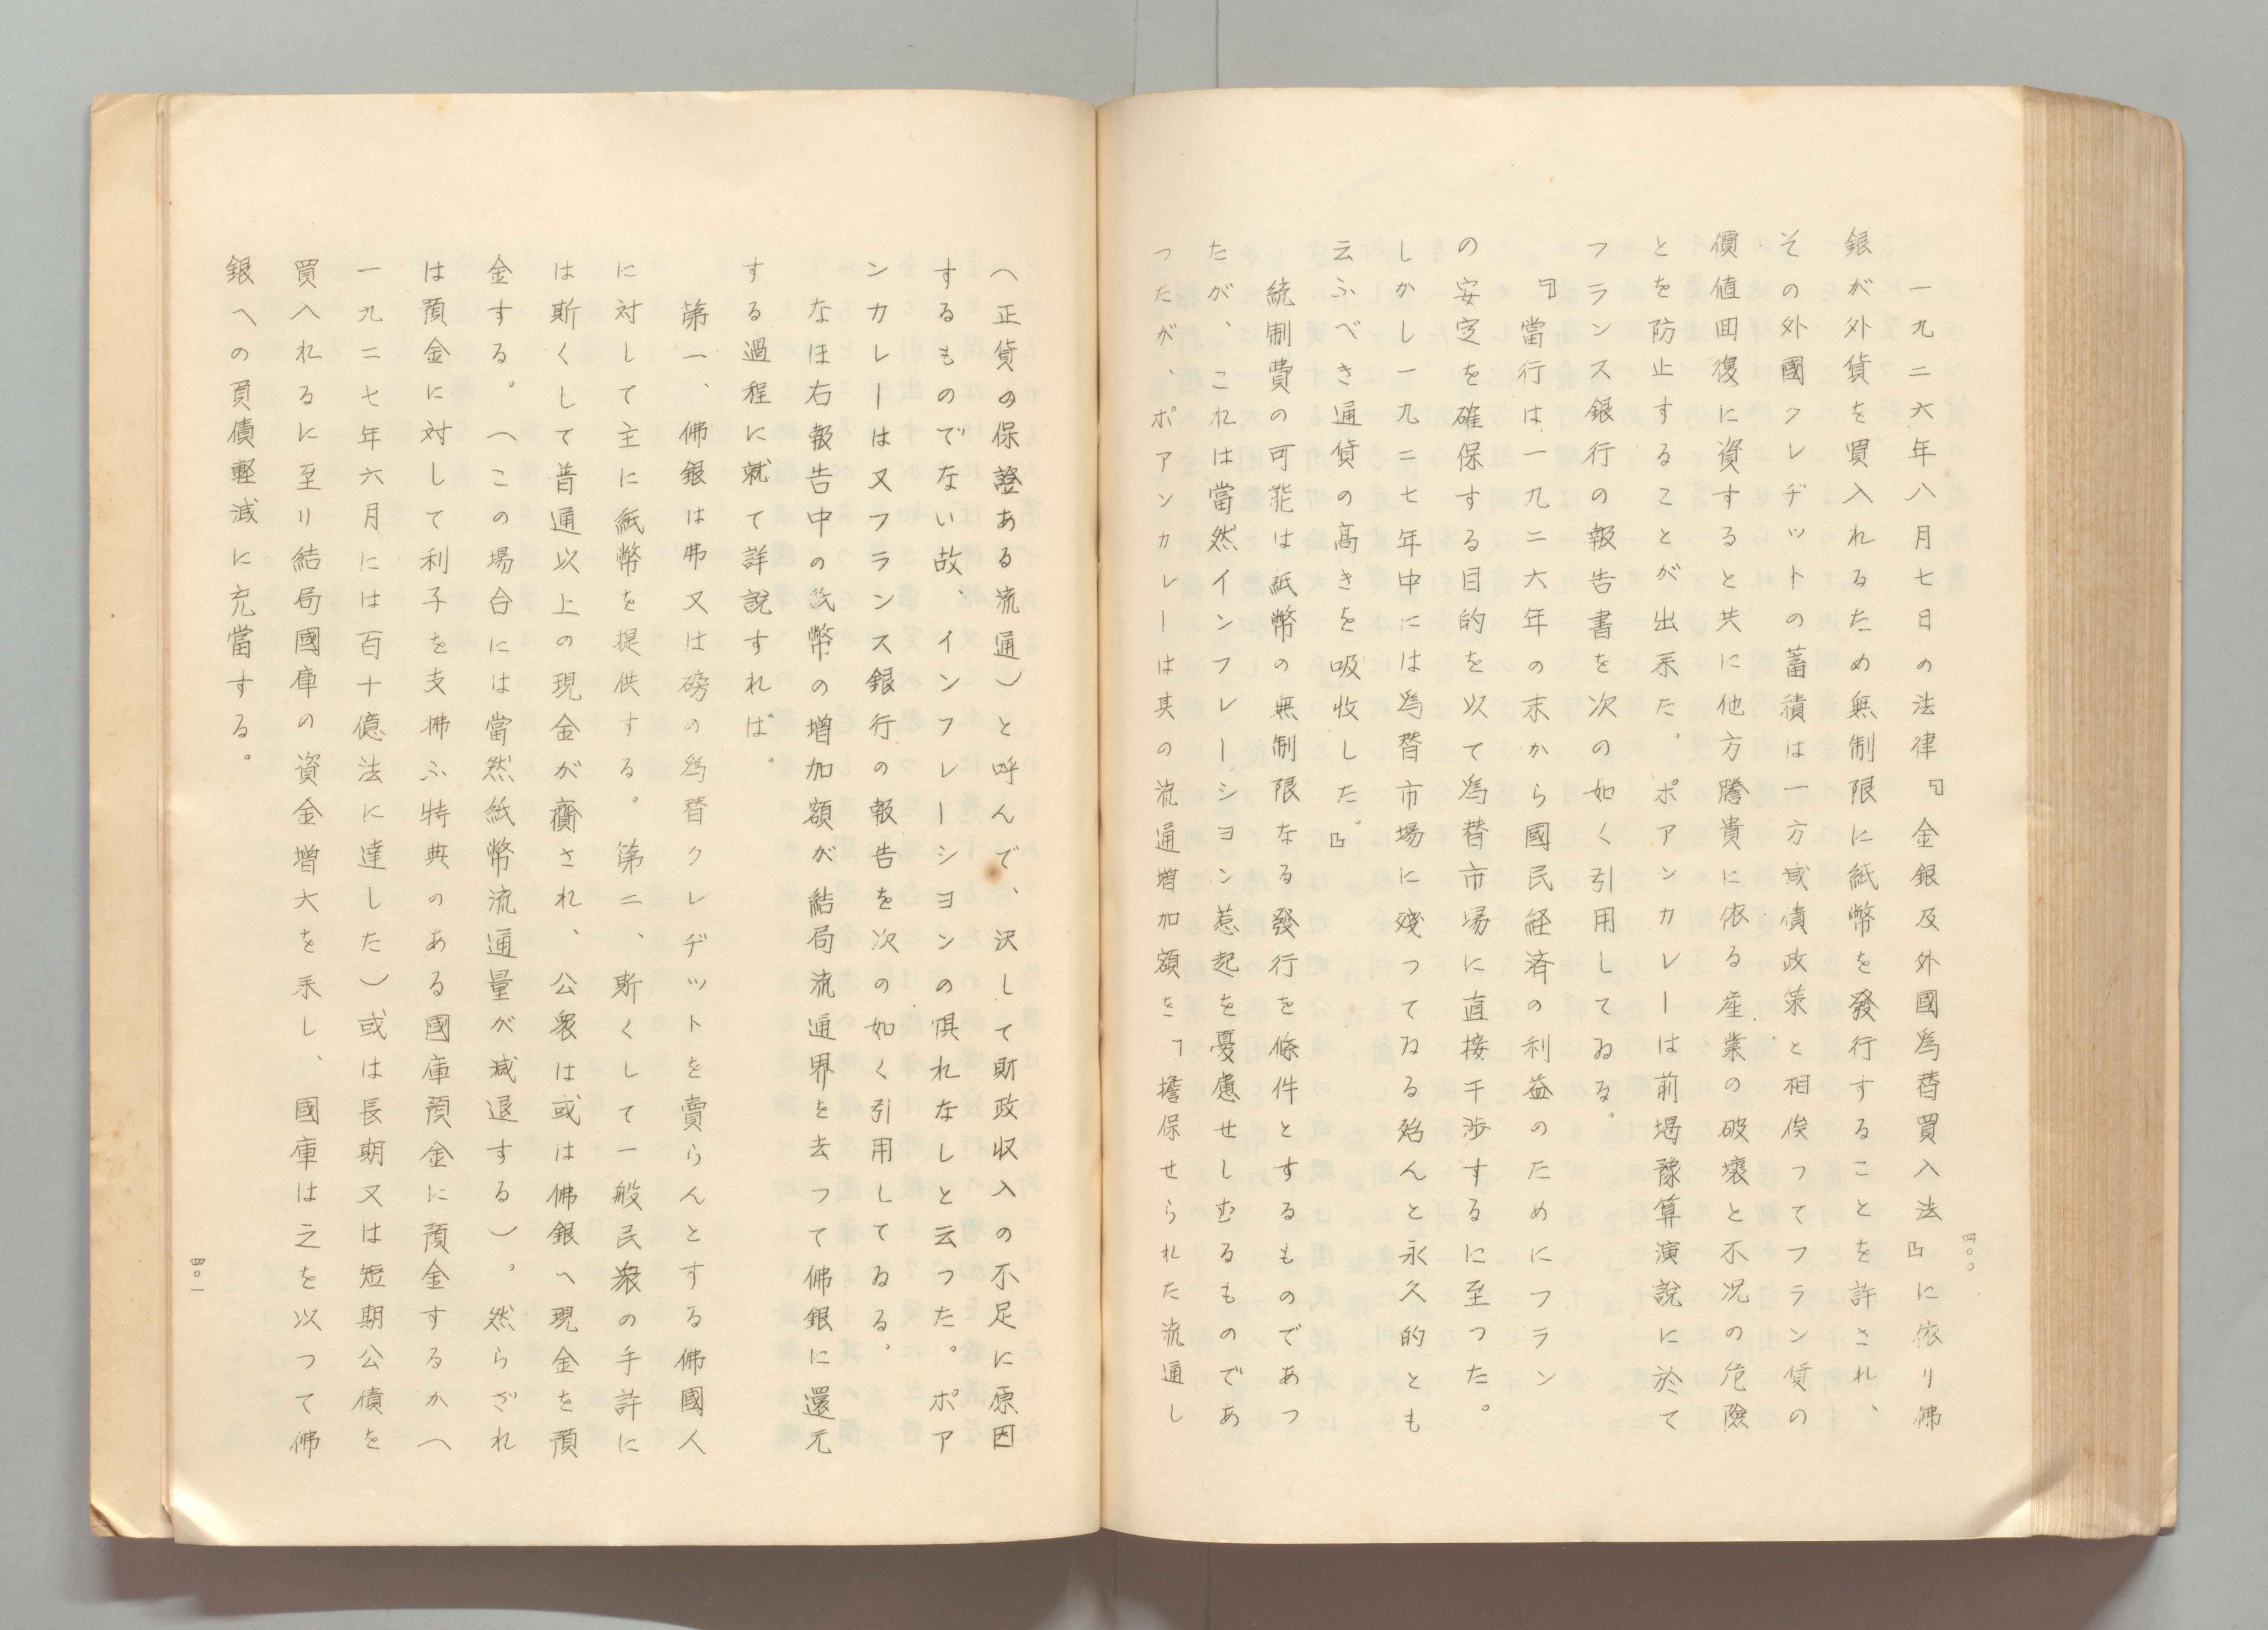 一九二六年八月七日の法律『金銀及外國爲替買入法』に依リ佛
銀が外貨を買入れるため無制限に紙幣を發行することを許され、
その外國クレヂットの蓄積は一方減債政策と相俟つてフラン貨の
價値囬復に資すると共に他方騰貴に依る産業の破壞と不況の危險
とを防止することが出來た。ポアンカレーは前掲豫算演說に於て
フランス銀行の報告書を次の如く引用してゐる。
『當行は一九二六年の末から國民経済の利益のためにフラン
の安定を確保する目的を以て爲替市場に直接干渉するに至つた。
しかし一九二七年中には爲替市場に殘つてゐる殆んと永久的とも
云ふべき通貨の高きを吸收した。』
統制費の可能は紙幣の無制限なる發行を條件とするものであつ
たが、これは當然インフレーション惹起を憂慮せしむるものであ
つたが、ポアンカレーは其の流通増加額を「擔保せられた流通し
四〇〇
（正貨の保證ある流通）と呼んで、決して財政収入の不足に原因
するものでない故、インフレーションの惧れなしと云つた。ポア
ンカレーは又フランス銀行の報告を次の如く引用してゐる、
なほ右報告中の紙幣の増加額が結局流通界を去つて佛銀に還元
する過程に就て詳說すれば。
第一、佛銀は弗又は磅の爲替クレヂットを賣らんとする佛國人
に対して主に紙幣を提供する。第二、斯くして一般民衆の手許に
は斯くして普通以上の現金が齎され、公衆は或は佛銀へ現金を預
金する。（この場合には當然紙幣流通量が减退する）。然らざれ
は預金に対して利子を支拂ふ特典のある國庫預金に預金するか（
一九二七年六月には百十億法に達した）或は長期又は短期公債を
買入れるに至リ結局國庫の資金増大を來し、國庫は之を以つて佛
銀への負債軽减に充當する。
四〇一